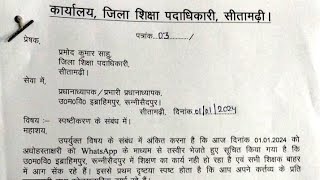 कार्यालय, जिला शिक्षा पदाधिकारी, सीतामढ़ी।
पत्रांक 03
प्रेषक,
प्रमोद कुमार साहु
जिला शिक्षा पदाधिकारी,
सीतामढ़ी।
सेवा में,
प्रधानाध्यापक/प्रभारी प्रधानाध्यापक,
उ०म०वि० इब्राहिमपुर, रून्नीसैदपुर।
सीतामढ़ी, दिनांक 01/01/2024
विषय :- स्पष्टीकरण के संबंध में।
महाशय,
उपर्युक्त विषय के संबंध में अंकित करना है कि आज दिनांक 01.01.2024 को
अधोहस्ताक्षरी को WhatsApp के माध्यम से तस्वीर भेजते हुए सूचित किया गया है कि
उ०म०वि० इब्राहिमपुर, रून्नीसैदपुर में शिक्षण का कार्य नही हो रहा है एवं सभी शिक्षक बाहर
में आग सेंक रहे हैं। इससे प्रथम दृष्टया स्पष्ट होता है कि आप अपने कर्तव्य के प्रति